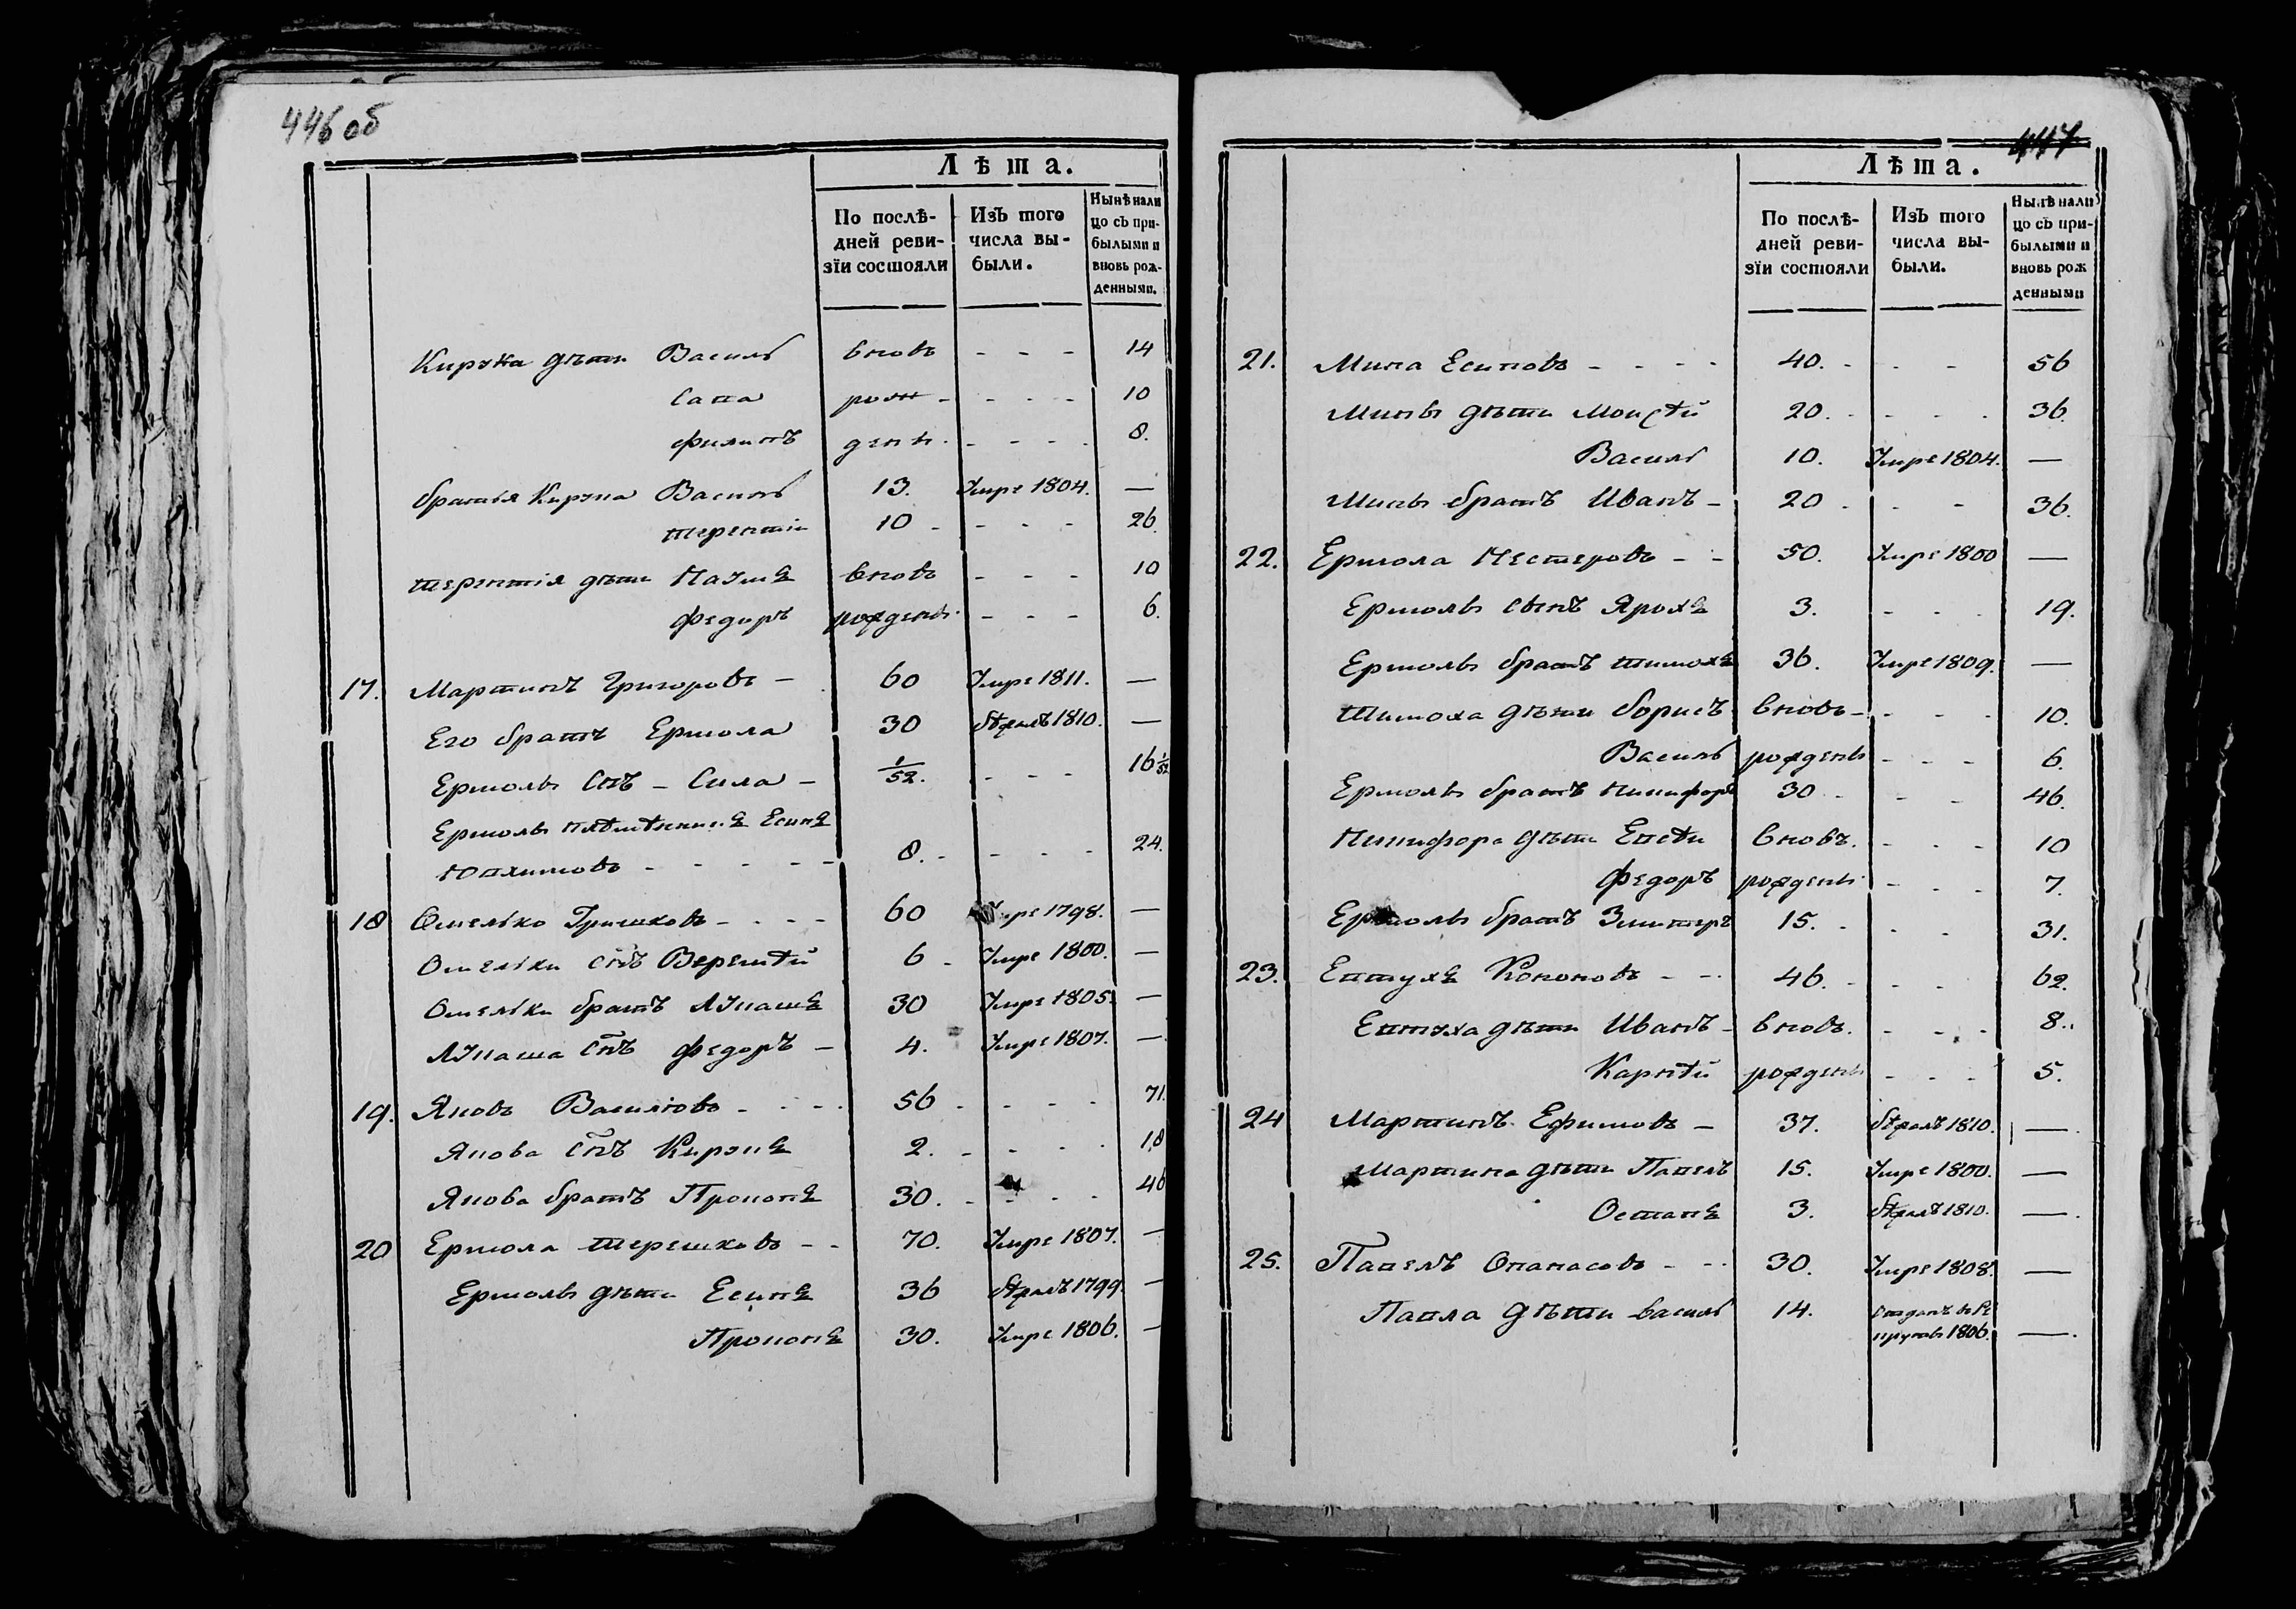 446 об
Лѣта.
По послѣ-
дней реви-
зїи состояли
Изъ того
числа вы-
были.
Нынѣ нали
цо съ при-
былыми и
вновь рож-
денными.
Кирѣка дѣти Василь вновь - - - 14
Сапа рож - - - - 10
Филипъ дены - - - - 8.
братья Кирѣка Василь 13. Умре 1804. —
терентіи 10 - - - - 26
терентія дѣти Наумъ вновь - - - 10
Федоръ рождены - - - 6.
17. Мартинъ Григоровъ - 60 Умре 1811. —
Его братъ Ермола 30 бѣжалъ 1810. —
Ермолы Снъ - Сила - 1/52. - - - 16 1/52
Ермолы племѣнникъ Есипъ
Юпхимовъ - - - - - 8. - - - - 24.
18 Омелько Гришковъ - - - - 60 Умре 1798. —
Омельки снъ Веремѣй 6 - Умре 1800. —
Омельки братъ Лупашъ 30 Умре 1805. —
Лупаша Снъ Федоръ - 4. Умре 1807. —
19. Яковъ Васильовъ - - - - 56 - - - - 71.
Якова Снъ Кирѣкъ 2. - - - - 18
Якова братъ Прокопъ 30. - - - - 46
20 Ермола терешковъ - - 70. Умре 1807. —
Ермолы дѣти Есипъ 36 бѣжалъ 1799. —
Прокопъ 30. Умре 1806. —
447
Лѣта.
По послѣ-
дней реви-
зїи состояли
Изъ того
числа вы-
были.
Нынѣ нали
цо съ при-
былыми и
вновь рож
денными
21. Мина Есиповъ - - - - 40. - - - 56
Мины дѣти Моисѣй 20. - - - - 36.
Василь 10. Умре 1804. —
Мины братъ Иванъ - 20 - - - 36.
22. Ермола Нестеровъ - - 50. Умре 1800 —
Ермолы сынъ Ярохъ 3. - - - 19.
Ермолы братъ тимохъ 36. Умре 1809. —
Тимоха дѣти борисъ вновь - - - - 10.
Василь рождены - - - 6.
Ермолы братъ Никифоръ 30 - - - 46.
Никифора дѣти Евсѣи вновь. - - - 10
Федоръ рождены - - - 7.
Ермолы братъ Змитеръ 15. - - - 31.
23. Евтухъ Кононовъ - - 46. - - - 62.
Евтуха дѣти Иванъ - вновь. - - - 8.
Карнѣй рождены - - - 5.
24 Мартинъ Ефимовъ - 37. бѣжалъ 1810. —
Мартина дѣти Павелъ 15. Умре 1800. —
Остапъ 3. бѣжалъ 1810. —
25. Павелъ Опанасовъ - - 30. Умре 1808. —
Павла дѣти василь 14. Отданъ в Ре
круты 1806. —